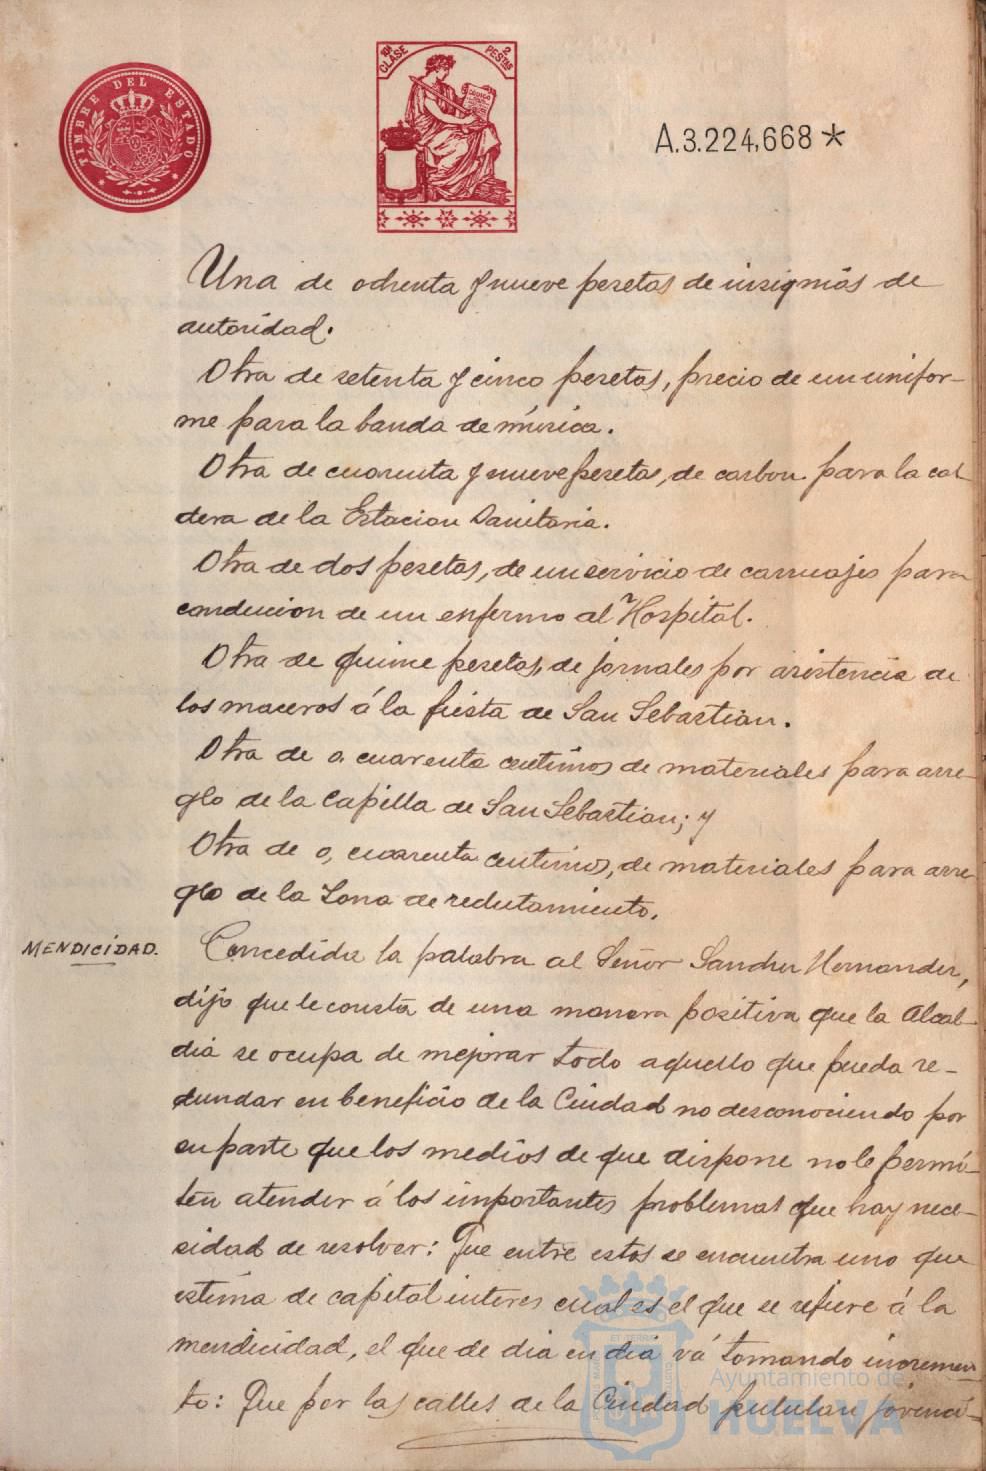 TIMBRE DEL ESTADO
10ª CLASE 2 PESTAS
A.3.224,668*
Una de ochenta y nueve pesetas de insignias de
autoridad.
Otra de setenta y cinco pesetas, precio de un unifor-
me para la banda de música.
Otra de cuarenta y nueve pesetas, de carbon para la cal-
dera de la Estacion Sanitaria.
Otra de dos pesetas, de un servicio de carruajes para
conducion de un enfermo al Hospital.
Otra de quince pesetas, de jornales por asistencia de
los maceros á la fiesta de San Sebastian.
Otra de 0, cuarenta centimos de materiales para arre-
glo de la Capilla de San Sebastian; y
Otra de 0, cuarenta centimos, de materiales para arre-
glo de la Zona de reclutamiento.
MENDICIDAD.
Concedida la palabra al Señor Sanchez Hernandez,
dijo que le consta de una manera positiva que la Alcal-
dia se ocupa de mejorar todo aquello que pueda re-
dundar en beneficio de la Ciudad no desconociendo por
su parte que los medios de que dispone no le permi-
ten atender á los importantes problemas que hay nece-
sidad de resolver: Que entre estos se encuentra uno que
estima de capital interes cual es el que se refiere á la
mendicidad, el que de dia en dia vá tomando incremen-
to: Que por las calles de la Ciudad pululan jovenci-
Ayuntamiento de
HUELVA